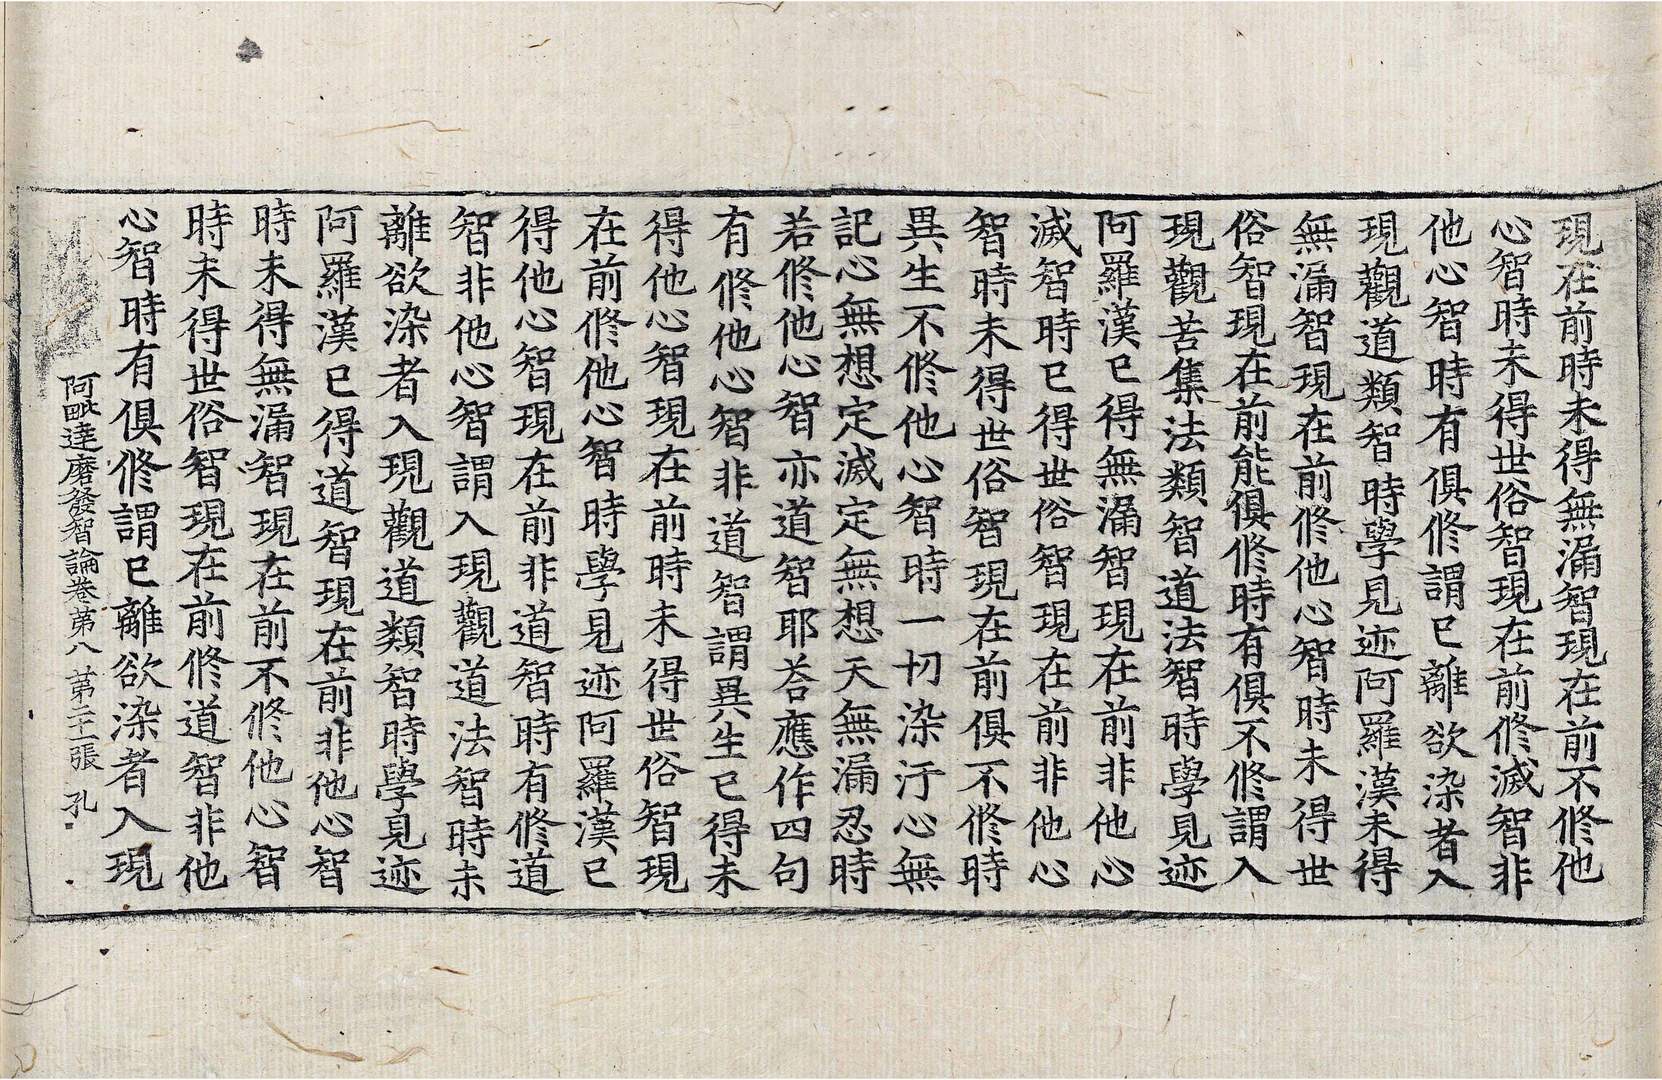 現在前時未得無漏智現在前不修他
心智時未得世俗智現在前修滅智非
他心智時有俱修謂已離欲染者入
現觀道類智時學見迹阿羅漢未得
無漏智現在前修他心智時未得世
俗智現在前能俱修時有俱不修謂入
現觀苦集法類智道法智時學見迹
阿羅漢已得無漏智現在前非他心
滅智時已得世俗智現在前非他心
智時未得世俗智現在前俱不修時
異生不修他心智時一切染汙心無
記心無想定滅定無想天無漏忍時
若修他心智亦道智耶荅應作四句
有修他心智非道智謂異生已得未
得他心智現在前時未得世俗智現
在前修他心智時學見迹阿羅漢已
得他心智現在前非道智時有修道
智非他心智謂入現觀道法智時未
離欲染者入現觀道類智時學見迹
阿羅漢已得道智現在前非他心智
時未得無漏智現在前不修他心智
時未得世俗智現在前修道智非他
心智時有俱修謂已離欲染者入現
阿毗達磨發智論卷第八 第二十一張 孔